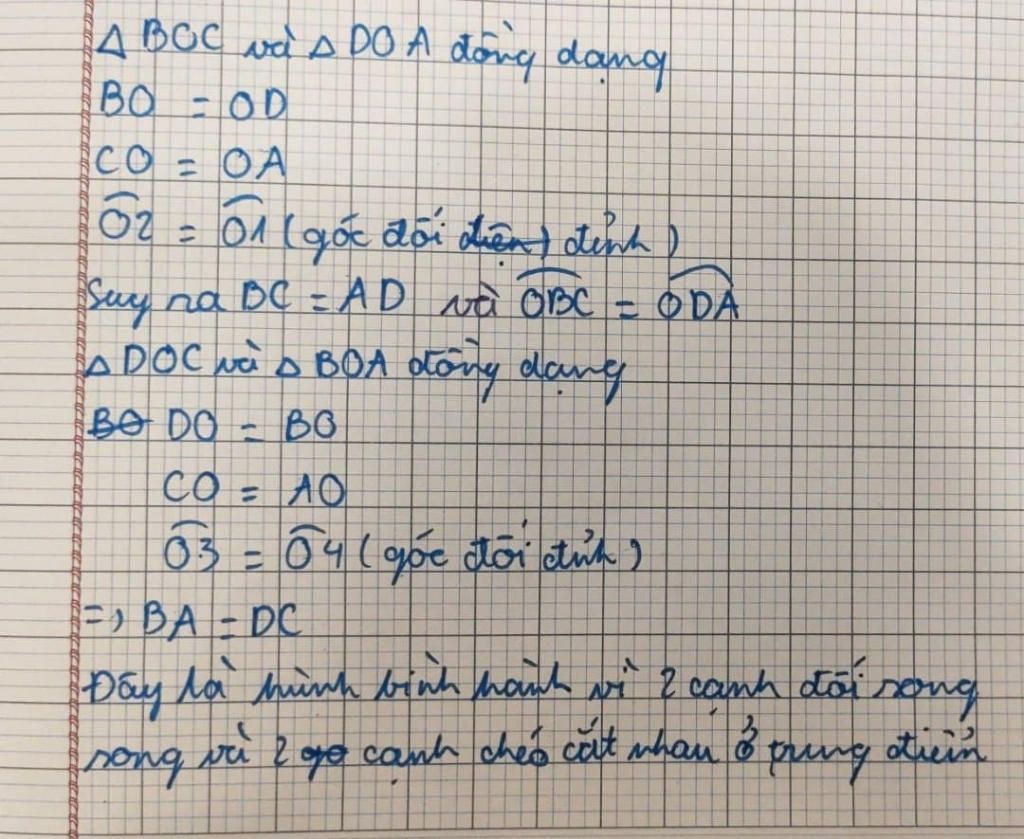 △ BOC và △ DOA đồng dạng
BO = OD
CO = OA
Ô2 = Ô1 (góc đối đỉnh)
Suy ra BC = AD và OBC = ODA
△ DOC và △ BOA đồng dạng
DO = BO
CO = AO
Ô3 = Ô4 (góc đối đỉnh)
=> BA = DC
Đây là hình bình hành vì 2 cạnh đối song
song và 2 cạnh chéo cắt nhau ở trung điểm